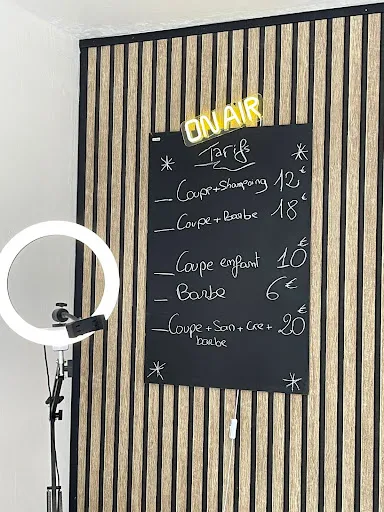 ON AIR
Tarifs
Coupe+Shampoing 12€
Coupe+Barbe 18€
Coupe enfant 10€
Barbe 6€
Coupe+Soin+Cire+ 20€
barbe